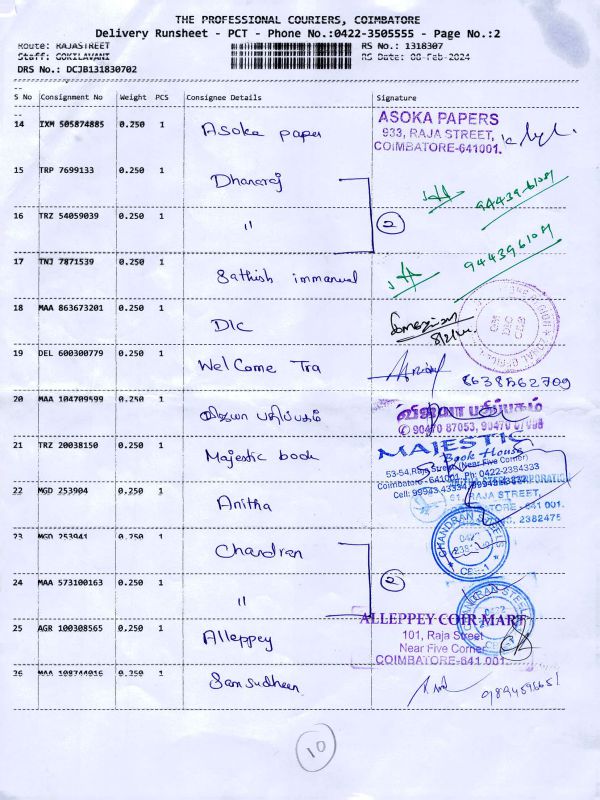 THE PROFESSIONAL COURIERS, COIMBATORE
Delivery Runsheet - PCT - Phone No.:0422-3505555 - Page No.:2
Route: RAJASTREET RS No.: 1318307
Staff: GOKILAVANI RS Date: 08-Feb-2024
DRS No.: DCJB131830702
S No Consignment No Weight PCS Consignee Details Signature
14 IXM 505874885 0.250 1 Asoka paper
ASOKA PAPERS
933, RAJA STREET,
COIMBATORE-641001.
15 TRP 7699133 0.250 1 Dhanaraj
16 TRZ 54059039 0.250 1 " 2
17 TNJ 7871539 0.250 1 Sathish immanual
18 MAA 863673201 0.250 1 DLC
8/2/24
19 DEL 600300779 0.250 1 Welcome Tra
20 MAA 104709599 0.250 1 விஜயா பதிப்பகம்
விஜயா பதிப்பகம்
21 TRZ 20038150 0.250 1 Majestic book
MAJESTIC
Book House
53-54, Raja Street, (Near Five Corner)
Coimbatore - 641001. Ph: 0422-2384333
22 MGD 253904 0.250 1 Anitha
RAJA STREET,
23 MGD 253941 0.250 1 Chandran
CHANDRAN STEELS
CBE-1
24 MAA 573100163 0.250 1 " 2
CHANDRAN STEELS
25 AGR 100308565 0.250 1 Alleppey
ALLEPPEY COIR MART
101, Raja Street
Near Five Corner
COIMBATORE-641 001.
26 MAA 108744016 0.250 1 Samsudheen
10